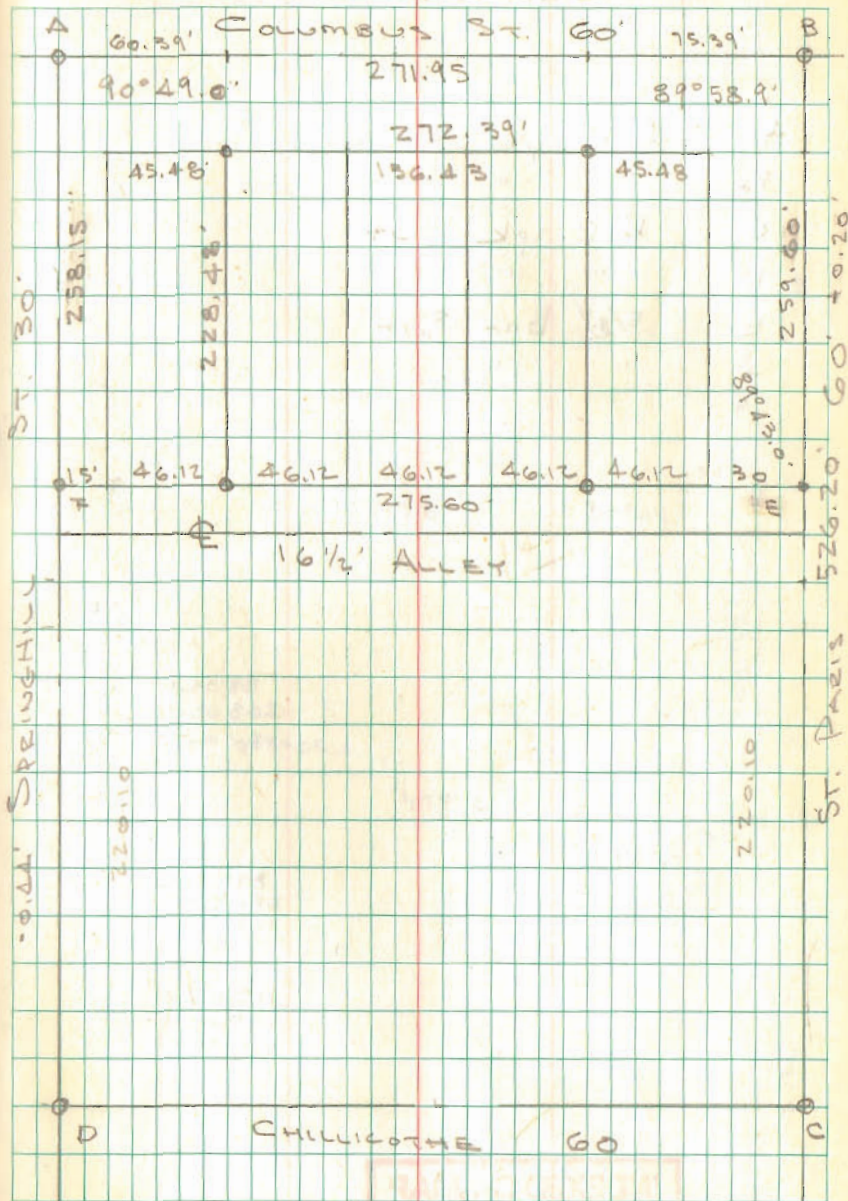 A COLUMBUS ST. 60' B
60.39' 75.39'
271.95
90°49.0' 89°58.9'
272.39'
45.48' 136.43 45.48
258.15'
228.48'
259.60'
ST. 30'
60' +0.20'
89°43.0'
15' 46.12 46.12 46.12 46.12 46.12 30
F 275.60 E
℄
16 1/2' ALLEY
526.20'
SPRINGHILL
ST. PARIS
220.10 220.10
-0.44'
D CHILLICOTHE 60 C